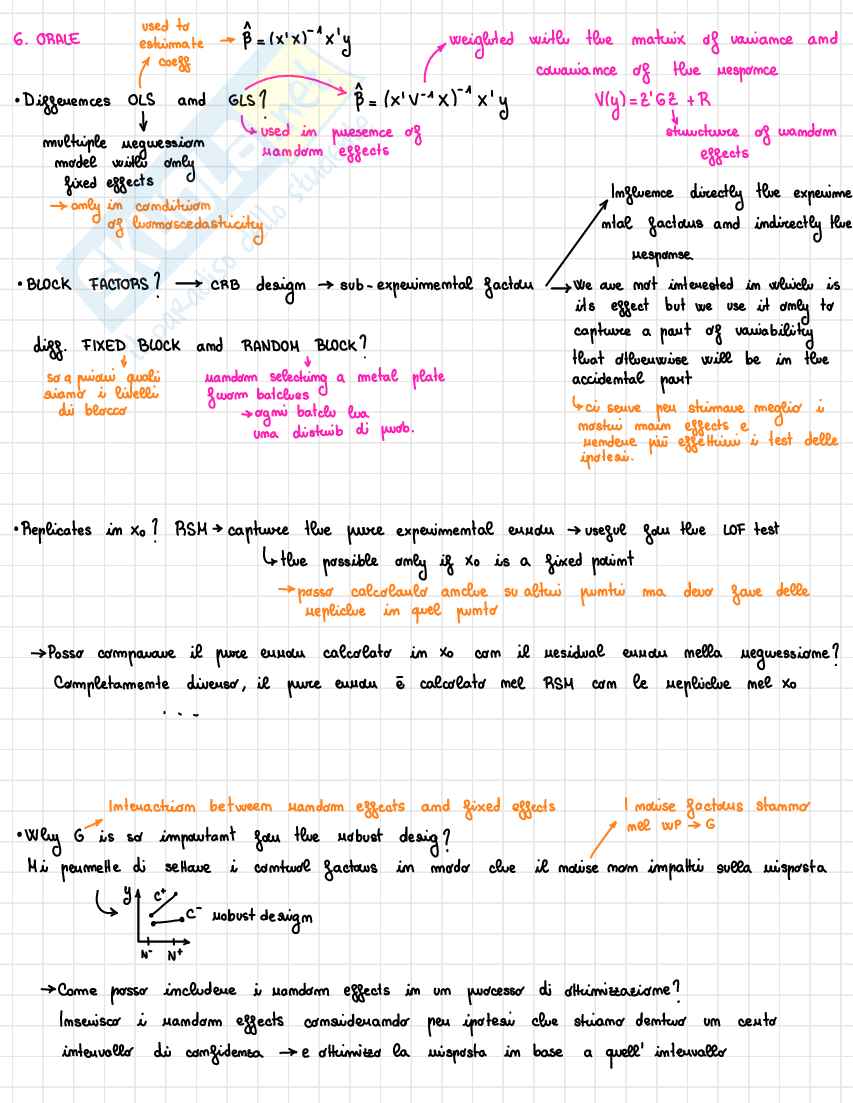 6. ORALE
used to
estimate → β̂ = (x'x)⁻¹ x'y
coeff
weighted with the matrix of variance and
covariance of the response
• Differences OLS and GLS? β̂ = (x'V⁻¹x)⁻¹ x'y
V(y) = Z'GZ + R
↳ used in presence of
random effects
structure of random
effects
multiple regression
model with only
fixed effects
→ only in condition
of homoscedasticity
Influence directly the experime
ntal factors and indirectly the
response
• BLOCK FACTORS? → CRB design → sub-experimental factor
→ We are not interested in which is
its effect but we use it only to
capture a part of variability
that otherwise will be in the
accidental part
↳ ci serve per stimare meglio i
nostri main effects e
rendere più effettivi i test delle
ipotesi.
diff. FIXED BLOCK and RANDOM BLOCK?
so a priori quali
siano i livelli
di blocco
random selecting a metal plate
from batches
→ ogni batch ha
una distrib di prob.
• Replicates in x₀? RSM → capture the pure experimental error → useful for the LOF test
↳ the possible only if x₀ is a fixed point
→ posso calcolarlo anche su altri punti ma devo fare delle
repliche in quel punto
→ Posso comparare il pure error calcolato in x₀ con il residual error nella regressione?
Completamente diverso, il pure error è calcolato nel RSM con le repliche nel x₀
...
Interaction between random effects and fixed effects
I noise factors stanno
nel WP → G
• Why G is so important for the robust desig?
Mi permette di settare i control factors in modo che il noise non impatti sulla risposta
y C⁺
C⁻ robust design
N⁻ N⁺
→ Come posso includere i random effects in un processo di ottimizzazione?
Inserisco i random effects considerando per ipotesi che stiamo dentro un certo
intervallo di confidenza → e ottimizzo la risposta in base a quell' intervallo
SKUOLA.net
il paradiso dello studente